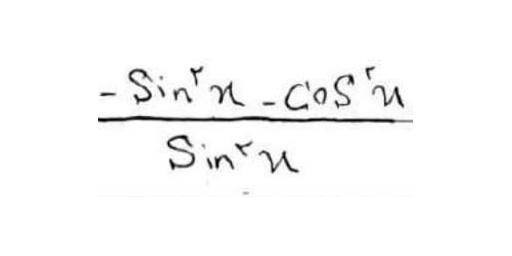 -Sin²x - Cos²x
Sin²x